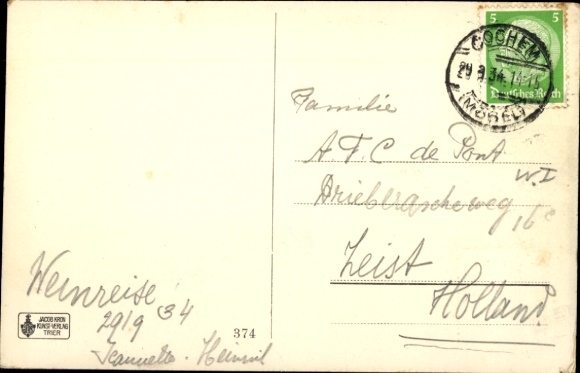 5 5
Deutsches Reich
COCHEM
34.14-15
(MOSEL)
Familie
A. F. C de Pont
W.I
Driebergscheweg 16c
Zeist
Holland
Weinreise '34
29/9
Jeannette - Heinrich
JACOB KRON
KUNST-VERLAG
TRIER
374